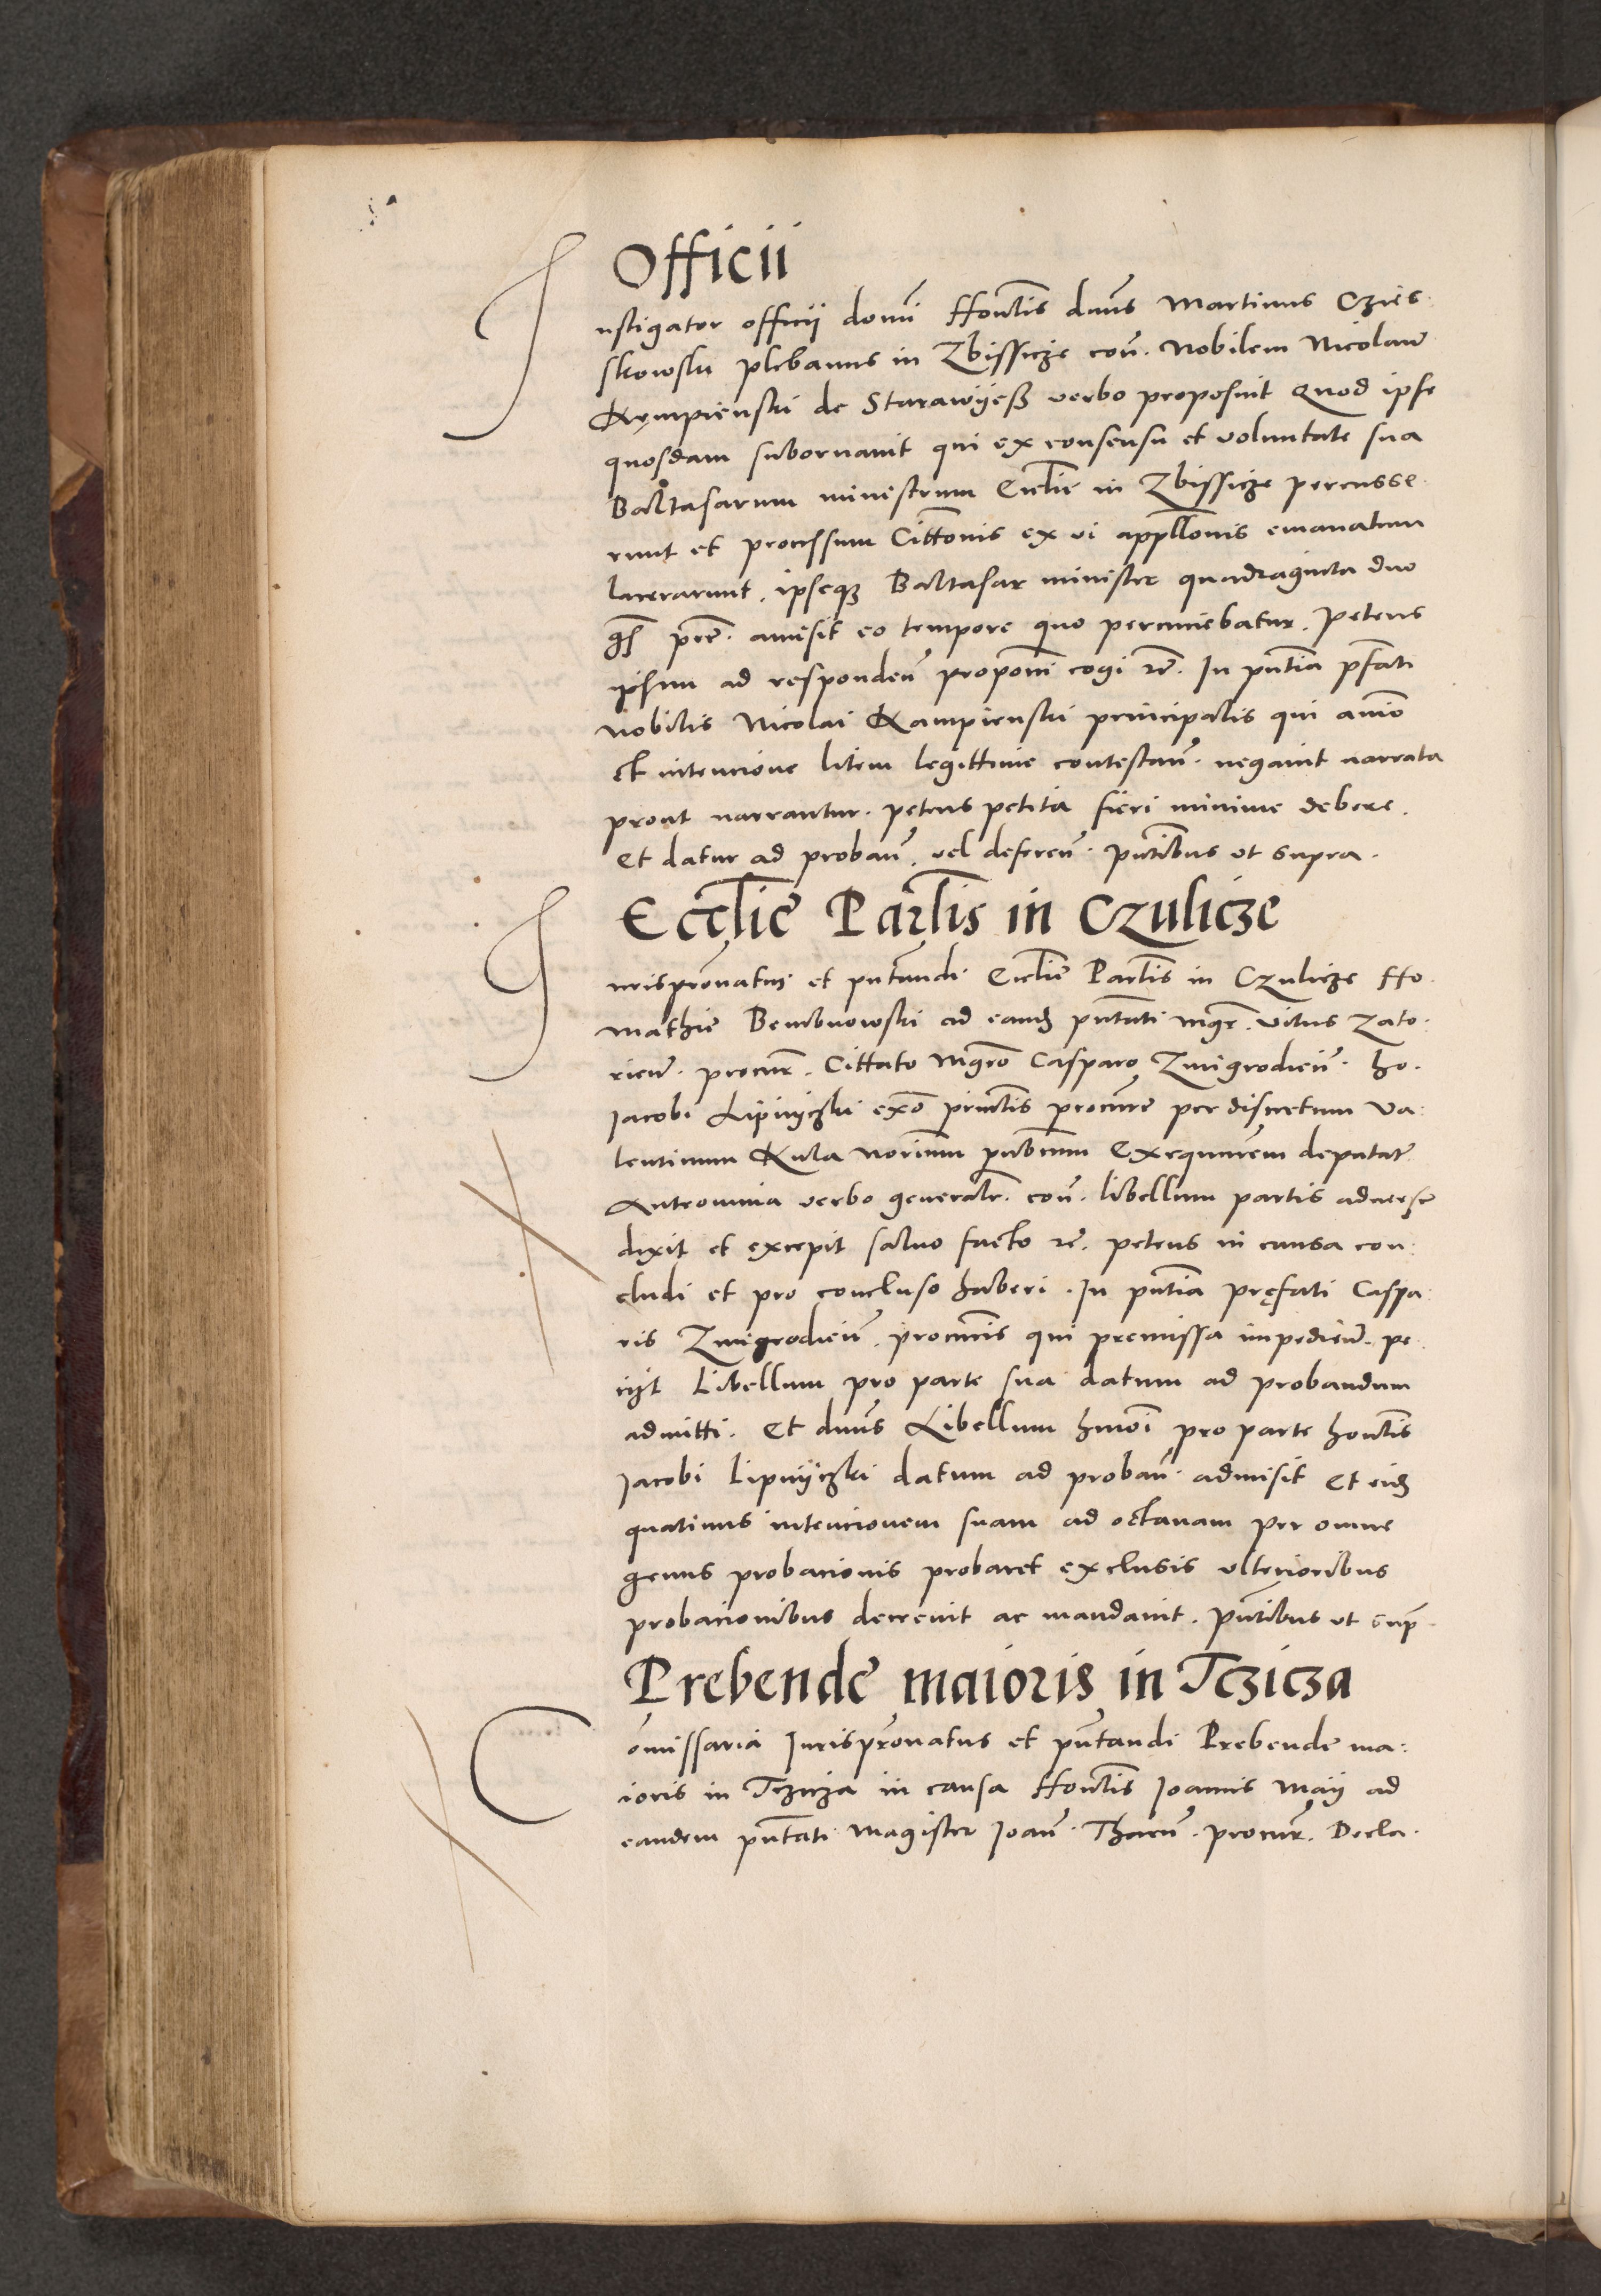 Officii
Instigator officii domini Honlis dnus Martinus Czies
skowski plebanus in Zbissicze con. Nobilem Nicolaum
Kempienski de Starawyesz verbo proposuit Quod ipse
quosdam subornavit qui ex consensu et voluntate sua
Baltasarum ministrum Ecclie in Zbissicze percusse
runt et processum Cittonis ex vi appllonis emanatum
lacerarunt. ipseq Baltasar minister quadraginta duo
gs pec. amisit eo tempore quo percuciebatur. petens
ipsum ad responden proponi cogi rc. In pntia pfati
nobilis Nicolai Kampienski principalis qui animo
et intencione litem legittime contestan. negavit narrata
prout narrantur. petens petita fieri minime debere.
Et datur ad proban. vel deferen. pntibus ut supra.
Ecclie Parlis in Czulicze
Jurispronatus et pntandi Ecclie Parlis in Czulicze Ho.
Mathie Bembnowski ad eand pntati mgr. Vitus Zato:
rien. procur. Cittato Mgro Casparo Zmigrodien. ho.
Jacobi Lipnyczki exo princlis procure per discretum Va:
lentinum Kula Norium pubcum Exequcurem deputat
Antromnia verbo generalr. con. libellum partis adverse
dixit et excepit salvo facto rc. petens in causa con:
cludi et pro concluso haberi. In pntia prefati Caspa:
ris Zmigrodien. procuris qui premissa impedien. pe
ciit Libellum pro parte sua datum ad probandum
admitti. Et dnus Libellum hmoi pro parte honlis
Jacobi Lipnyczki datum ad proban. admisit Et eid
quatinus intencionem suam ad octavam per omne
genus probacionis probaret exclusis ulterioribus
probacionibus decrevit ac mandavit. pntibus ut sup
Prebende maioris in Tczicza
Comissaria Jurispronatus et pntandi Prebende ma:
ioris in Tczicza in causa Honlis Joannis May ad
eandem pntati Magister Joan. Tharn. procur. Decla.